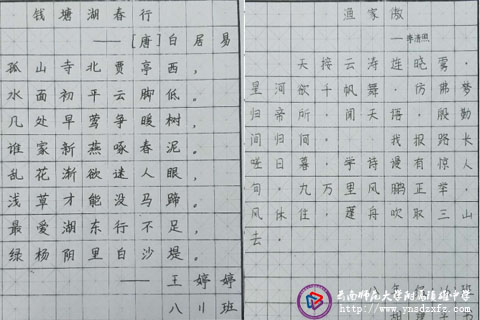 钱塘湖春行
——[唐]白居易
孤山寺北贾亭西,
水面初平云脚低。
几处早莺争暖树,
谁家新燕啄春泥。
乱花渐欲迷人眼,
浅草才能没马蹄。
最爱湖东行不足,
绿杨阴里白沙堤。
——王婷婷
八川班
渔家傲
——李清照
天接云涛连晓雾。
星河欲千帆舞。仿佛梦
归帝所,闻天语,殷勤
问归何。我报路长
嗟日暮,学诗谩有惊人
句。九万里风鹏正举。
风休住,蓬舟吹取三山
去。
八年级
班
云南师范大学附属镇雄中学
www.ynsdzxfz.com